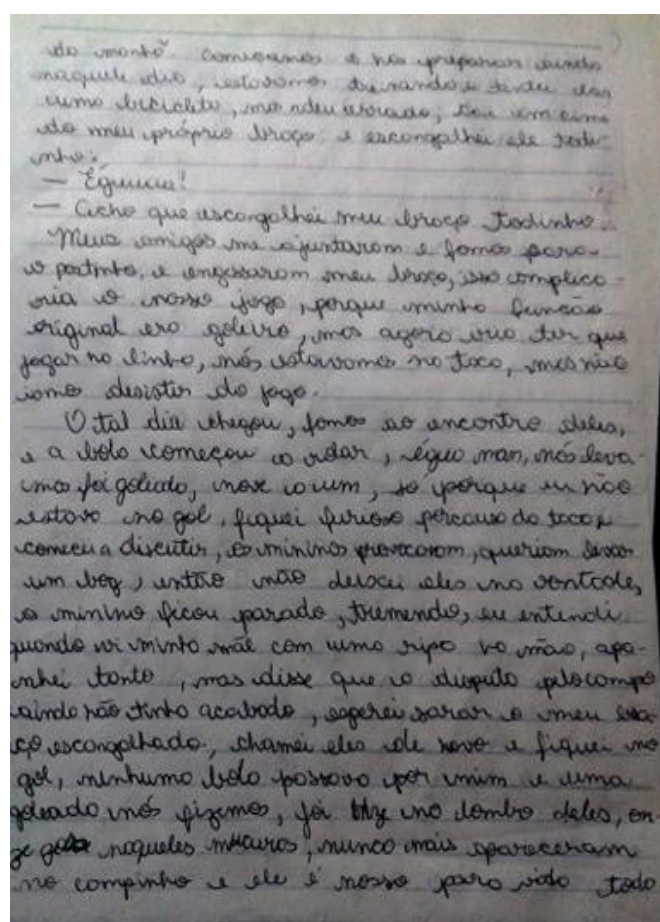 da manhã comessamos a nos preparar ainda
naquele dia, estavamos treinando e tentei dar
uma bicicleta, mas ndeu errado, em cima
do meu próprio braço e escongalhei ele todi-
nho:
— Éguuua!
— Acho que escongalhei meu braço todinho
Meus amigos me ajuntaram e fomos para
o postinho, e engessaram meu braço, isso complica-
ria o nosso jogo, porque minha função
original era goleiro, mas agora vou ter que
jogar na linha, nós estavamos no toco, mas não
iamos desistir do jogo.
O tal dia chegou, fomos ao encontro deles,
e a bola começou a rolar, égua man, nós leva-
mos foi goleada, nove a um, so porque eu não
estava no gol, fiquei furioso percausa do toco e
comecei a discutir, os mininos provocaram, queriam
um boy, então não deixei eles na vontade,
o minino ficou parado, tremendo, eu entendi
quando vi minha mãe com uma ripa na mão, apa-
nhei tanto, mas disse que a disputa pelo campo
ainda não tinha acabado, esperei sarar o meu bra-
ço escongalhado, chamei eles de novo e fiquei no
gol, ninhuma bola passava por mim e uma
goleada nós fizemos, foi no lombo deles, on-
ze naqueles mucuros, nunca mais apareceram
no campinho e ele é nosso para vida toda